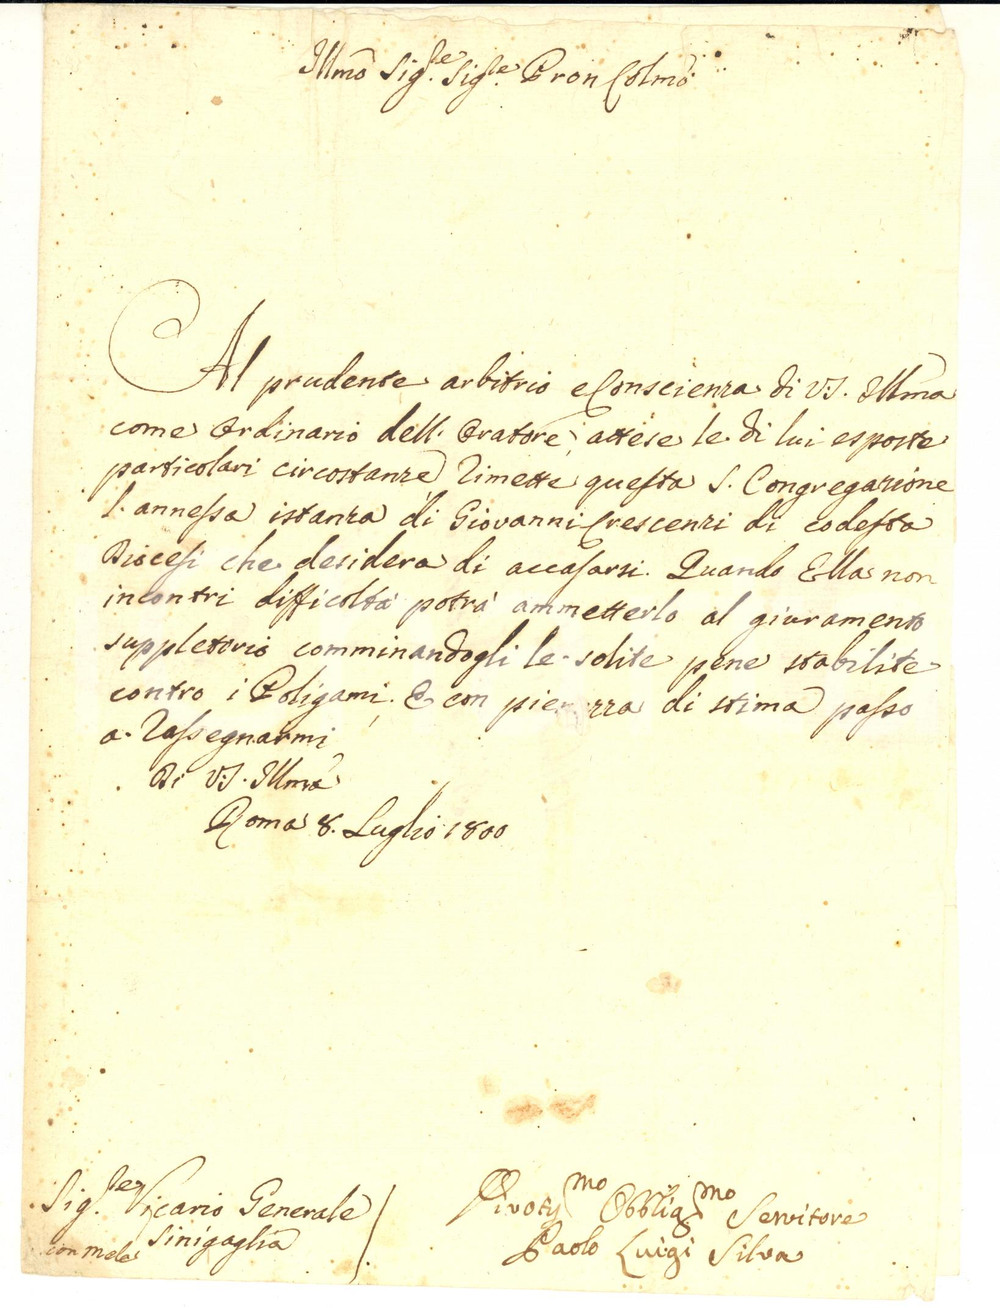 Illmo Sigle Sigle Pron Colmo
Al prudente arbitrio e Conscienza di V.S. Illma
come Ordinario dell'Oratore, attese le di lui esposte
particolari circostanze rimette questa S. Congregazione
l'annessa istanza di Giovanni Crescenzi di codesta
Diocesi che desidera di accasarsi. Quando Ella non
incontri difficoltà potrà ammetterlo al giuramento
suppletorio comminandogli le solite pene stabilite
contro i Poligami. E con pienezza di stima passo
a rassegnarmi
Di V.S. Illma
Roma 8. Luglio 1800
Sigle Vicario Generale
Sinigaglia
Divotmo Obbligmo Servitore
Paolo Luigi Silva